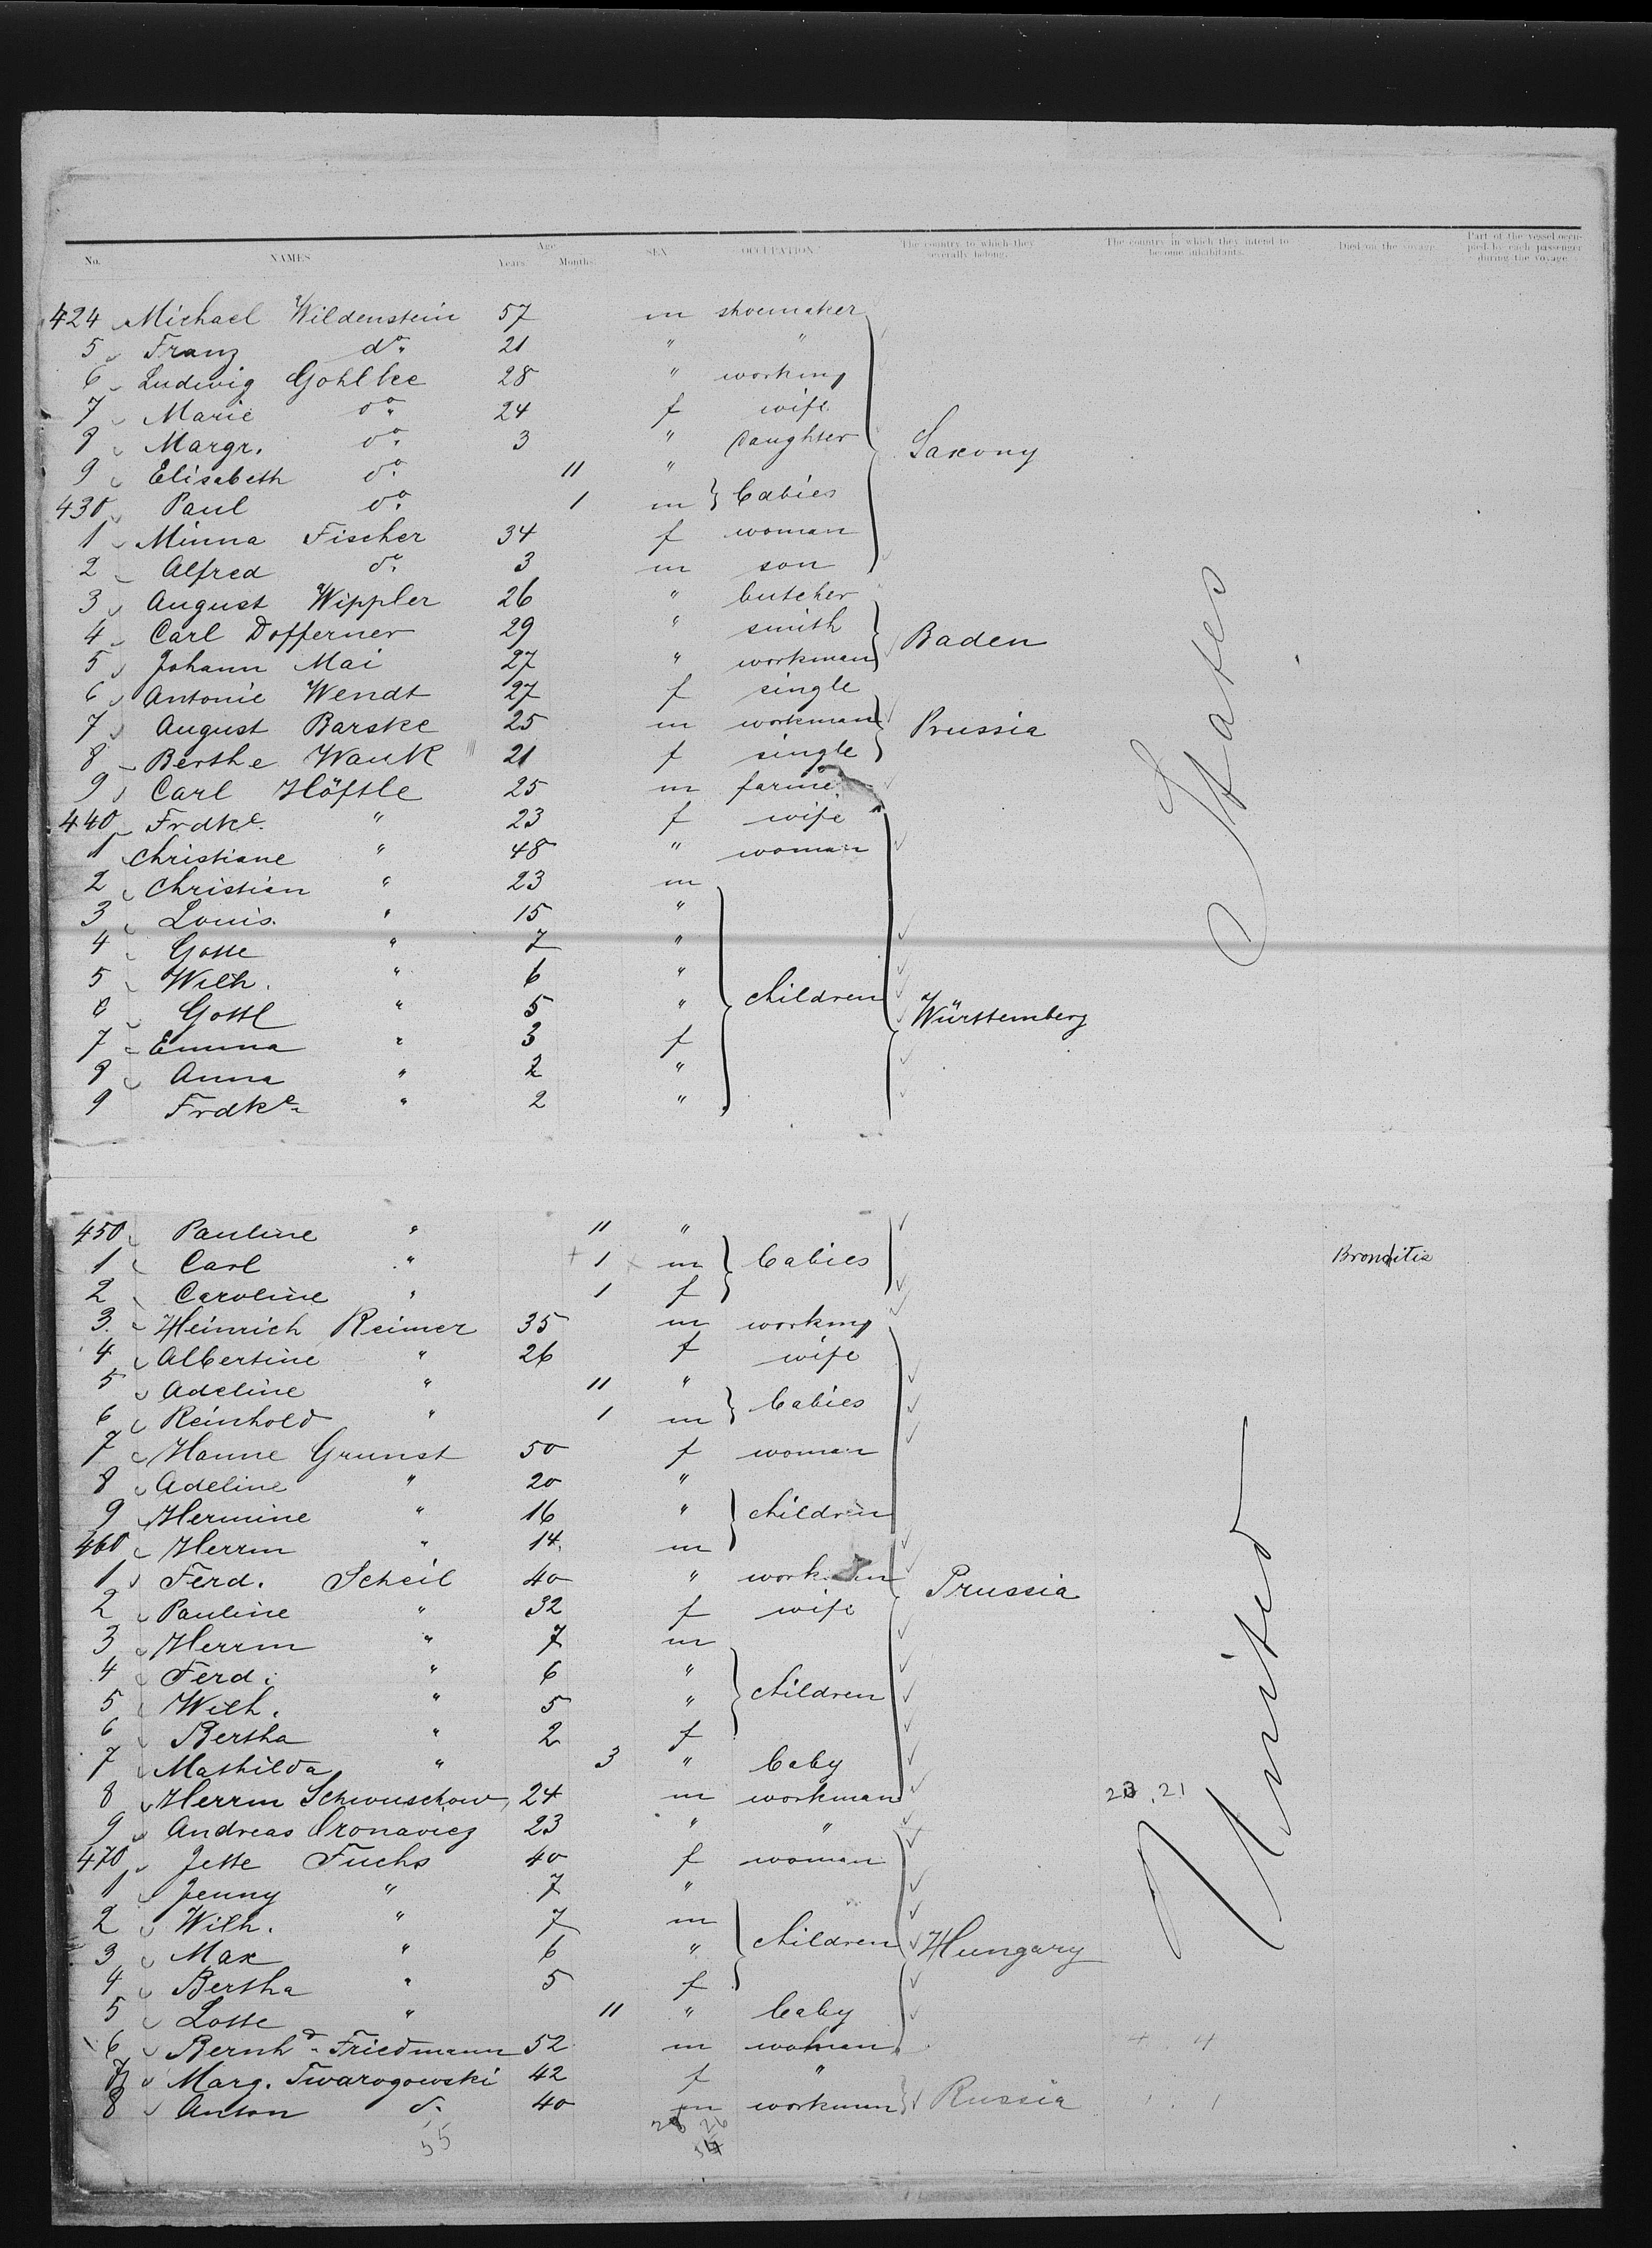 No. NAMES Age Years Months SEX OCCUPATION The country to which they severally belong. The country in which they intend to become inhabitants. Died on the voyage. Part of the vessel occupied by each passenger during the voyage.
424 Michael Wildenstein 57 m shoemaker
5 Franz do. 21 " "
6 Ludwig Gohlke 28 " working
7 Marie do. 24 f wife
8 Margr. do. 3 " daughter Saxony
9 Elisabeth do. 11 "
430 Paul do. 1 m babies
1 Minna Fischer 34 f woman
2 Alfred do. 3 m son
3 August Wippler 26 " butcher
4 Carl Dofferner 29 " smith Baden
5 Johann Mai 27 " workman
6 Antonie Wendt 27 f single
7 August Barske 25 m workman Prussia
8 Berthe Wauk 21 f single
9 Carl Höftle 25 m farme
440 Frdke. " 23 f wife
1 Christiane " 48 " woman
2 Christian " 23 m
3 Louis. " 15 "
4 Gotte " 7 "
5 Wilh. " 6 " children
6 Gottl " 5 " Württemberg
7 Emma " 3 f
8 Anna " 2 "
9 Frdke. " 2 "
450 Pauline " 11 "
1 Carl " + 1 x m babies Bronchitis
2 Caroline " 1 f
3. Heinrich Reimer 35 m working
4 Albertine " 26 f wife
5 Adeline " 11 "
6 Reinhold " 1 m babies
7 Hanne Grunst 50 f woman
8 Adeline " 20 "
9 Hermine " 16 " children
460 Herrm " 14. m
1 Ferd. Scheil 40 " workman Prussia
2 Pauline " 32 f wife
3 Herrm " 7 m
4 Ferd. " 6 "
5 Wilh. " 5 " children
6 Bertha " 2 f
7 Mathilda " 3 " baby
8 Herrm Schwuschow, 24 m workman 23. 21
9 Andreas Oronavicz 23 " "
470 Jette Fuchs 40 f woman
1 Jenny " 7 "
2 Wilh. " 7 m
3 Max " 6 " children Hungary
4 Bertha " 5 f
5 Lotte " 11 " baby
6 Bernhd. Friedmann 52 m woman 4. 4
7 Marg. Twarogowski 42 f "
8 Anton d. 40 m workman Russia 1. 1
55 26
United States